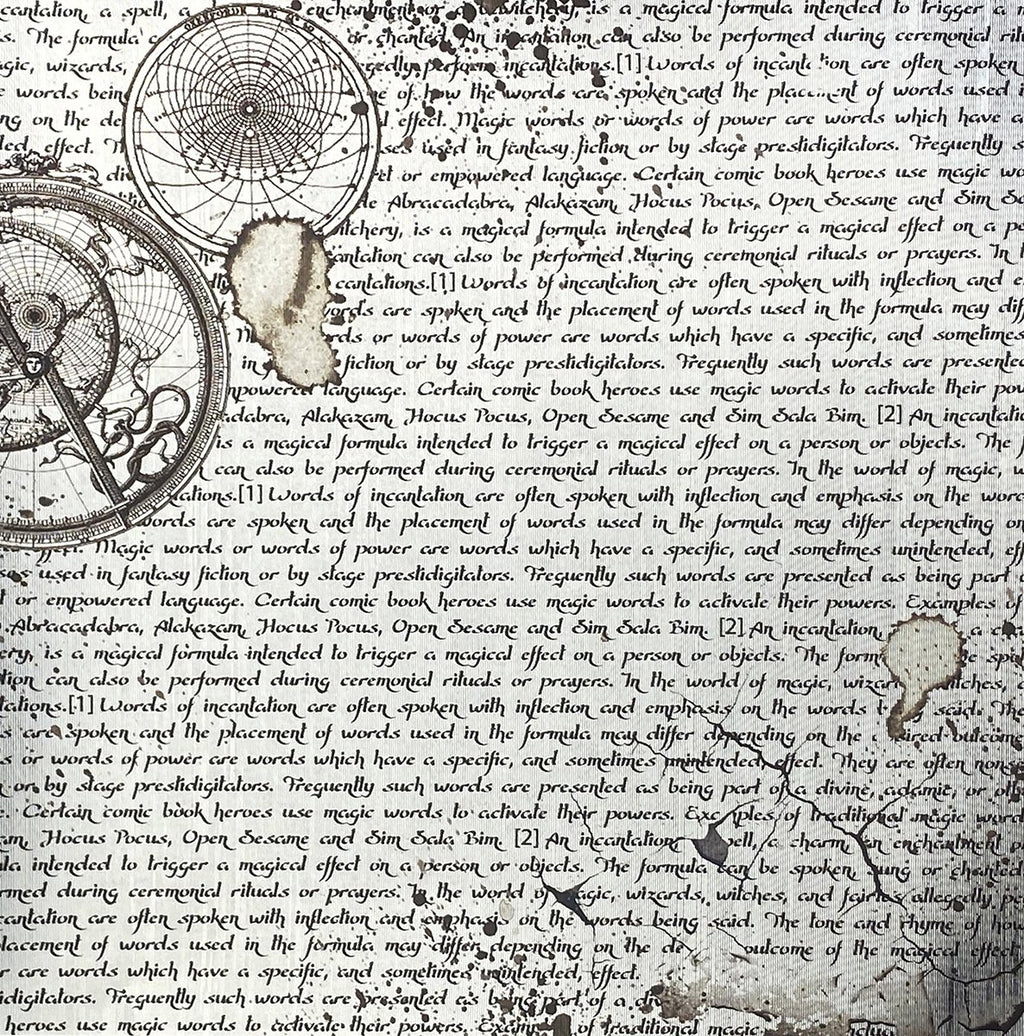 cantation, a spell, a enchantment or a bewitchery, is a magical formula intended to trigger a m
s. The formula c or chanted. An incantation can also be performed during ceremonial ritu
agic, wizards, gedly perform incantations.[1] Words of incantation are often spoken
e words bein e of how the words are spoken and the placement of words used i
ng on the de l effect. Magic words or words of power are words which have a
ded, effect. ses used in fantasy fiction or by stage prestidigitators. Frequently s
div et or empowered language. Certain comic book heroes use magic wo
de Abracadabra, Alakazam, Hocus Pocus, Open Sesame and Sim Sa
itchery, is a magical formula intended to trigger a magical effect on a pe
antation can also be performed during ceremonial rituals or prayers. In t
cantations.[1] Words of incantation are often spoken with inflection and e
words are spoken and the placement of words used in the formula may diff
rds or words of power are words which have a specific, and sometimes
in fiction or by stage prestidigitators. Frequently such words are presented
mpowered language. Certain comic book heroes use magic words to activate their pow
adabra, Alakazam, Hocus Pocus, Open Sesame and Sim Sala Bim. [2] An incantatio
is a magical formula intended to trigger a magical effect on a person or objects. The f
can also be performed during ceremonial rituals or prayers. In the world of magic, w
tations.[1] Words of incantation are often spoken with inflection and emphasis on the word
words are spoken and the placement of words used in the formula may differ depending on
effect. Magic words or words of power are words which have a specific, and sometimes unintended, eff
ses used in fantasy fiction or by stage prestidigitators. Frequently such words are presented as being part o
t or empowered language. Certain comic book heroes use magic words to activate their powers. Examples of
Abracadabra, Alakazam, Hocus Pocus, Open Sesame and Sim Sala Bim. [2] An incantation, a cha
ery, is a magical formula intended to trigger a magical effect on a person or objects. The form be spo
tion can also be performed during ceremonial rituals or prayers. In the world of magic, wizar witches, a
tations.[1] Words of incantation are often spoken with inflection and emphasis on the words said. The
s are spoken and the placement of words used in the formula may differ depending on the desired outcome
s or words of power are words which have a specific, and sometimes unintended, effect. They are often nons
or by stage prestidigitators. Frequently such words are presented as being part of a divine, adamic, or oth
e. Certain comic book heroes use magic words to activate their powers. Examples of traditional magic word
am, Hocus Pocus, Open Sesame and Sim Sala Bim. [2] An incantation, spell, a charm, an enchantment o
la intended to trigger a magical effect on a person or objects. The formula can be spoken, sung or chanted
rmed during ceremonial rituals or prayers. In the world of magic, wizards, witches, and fairies allegedly pe
cantation are often spoken with inflection and emphasis on the words being said. The tone and rhyme of how
placement of words used in the formula may differ depending on the de outcome of the magical effect
r are words which have a specific, and sometimes unintended, effect.
idigitators. Frequently such words are presented as being part of a div
heroes use magic words to activate their powers. Examp of traditional magic